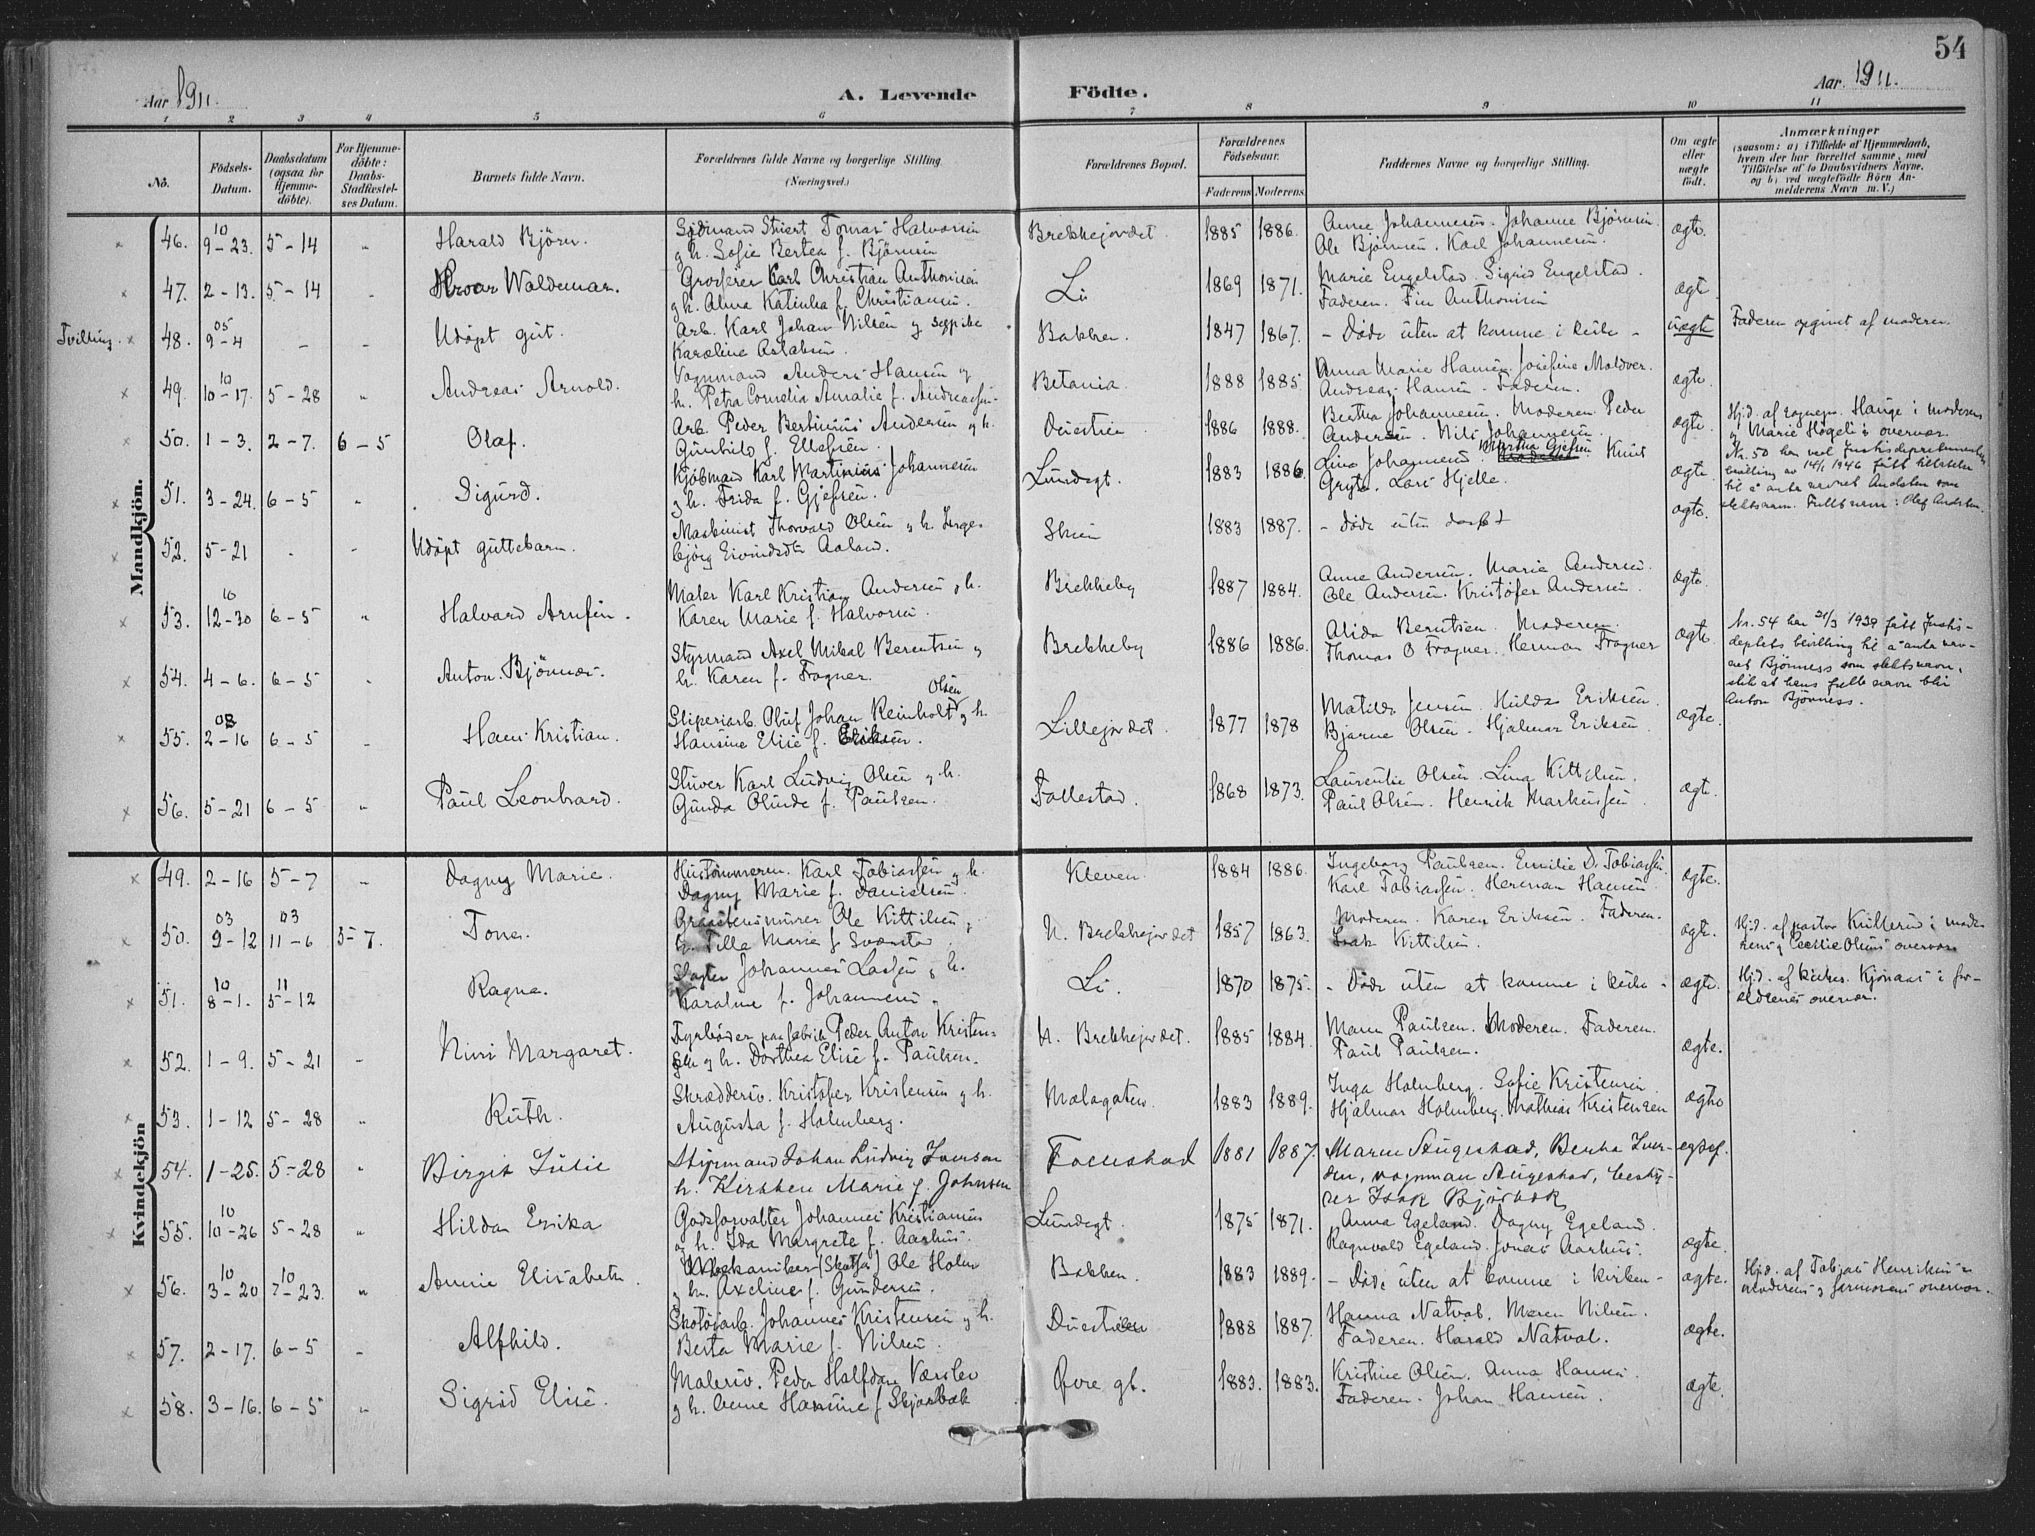 54
Aar 1911.
A. Levende
Födte.
Aar 1911.
1 2 3 4 5 6 7 8 9 10 11
No.
Födsels-Datum.
Daabsdatum (ogsaa for Hjemme-döbte).
For Hjemme-döbte: Daabs-Stadfæstel-ses Datum.
Barnets fulde Navn.
Forældrenes fulde Navne og borgerlige Stilling
(Næringsvei.)
Forældrenes Bopæl.
Forældrenes Födselsaar.
Faderens Moderens
Faddernes Navne og borgerlige Stilling.
Om ægte eller uægte födt.
Anmærkninger
(saasom: a) i Tilfælde af Hjemmedaab,
hvem der har forrettet samme, med
Tilföielse af to Daabsvidners Navne,
og b) ved uægtefödte Börn An-
melderens Navn m. V.)
Mandkjön.
46. 10 9-23. 5-14 " Harald Björn. Halvorsen
g h. Sofie Bertea f. Björnsen
Brekkejordet. 1885 1886. Anne Johannesen. Johanne Björnsen
Ole Björnsen. Karl Johannesen. ægte.
47. 2-13. 5-14 " Waldemar. Karl Christian Anthonisen
g h. Alma Katinka f. Christiansen.
Li 1869 1871. Marie Engelstad. Sigrid Engelstad.
Faderen. Finn Anthonisen ægte
Tvilling. 48. 05 9-4 - - Udöpt gut. Arb. Karl Johan Nilsen g
Karoline Aslaksen.
Bakken. 1847 1867. - Döde uten at komme i kirke - uægte Faderen opgivet af moderen.
49. 10 10-17. 5-28 " Andreas Arnold. Vognmand Anders Hansen g
h. Petra Cornelia Amalie f. Andreassen.
Betania. 1888 1885 Anna Marie Hansen. Josefine Moldver.
Andreas Hansen. Faderen. ægte.
50. 1-3. 2-7. 6-5 Olaf. Arb. Peder Bertinius Andersen g h.
Gunhild f. Ellefsen
Duestien 1886 1888. Bertha Johannesen. Moderen. Peder
Andersen. Nils Johannesen. ægte. Hjd. af sognepr. Hauge i moderens
g Marie Högeli's overvær.
Nr. 50 har ved Justisdepartementets
bevilling av 14/1 1946 fått tillatelse
til å anta navnet Andsten som
slektsnavn. Fullt navn: Olaf Andsten.
51. 3-24. 6-5 " Sigurd. Kjöbmand Karl Martinius Johannesen
g h. Frida f. Gjefsen.
Lundegt. 1883 1886 Lina Johannesen Martha Gjefsen Knut
Gryte. Lars Hjelle. ægte
52. 5-21 - - Udöpt guttebarn. Maskinist Thorvald Olsen g h. Inge-
björg Eivindsdtr Aaland.
Skien 1883 1887. - döde uten daab ægte.
53. 10 12-30 6-5 " Halvard Arnfin. Maler Karl Kristian Andersen g h.
Karen Marie f. Halvorsen.
Brekkeby 1887 1884. Anne Andersen. Marie Andersen.
Ole Andersen. Kristofer Andersen. ægte.
54. 4-6. 6-5 " Anton Björnnes. Styrmand Axel Mikal Berentsen g
h. Karen f. Fragner.
Brekkeby 1886 1886. Alida Berntsen. Moderen.
Thomas O Fragner. Herman Fragner ægte Nr. 54 har 21/3 1939 fått Justis-
deptets bevilling til å anta nav-
net Bjönness som slektsnavn,
slik at hans fulle navn blir
Anton Bjönness.
55. 08 2-16 6-5 " Hans Kristian. Sliperiarb. Oluf Johan Reinholt Olsen g h.
Hansine Elise f. Eriksen.
Lillejordet. 1877 1878 Matilde Jensen. Hulda Eriksen.
Bjarne Olsen. Hjalmar Eriksen. ægte.
56. 5-21 6-5 " Paul Leonhard. Stuver Karl Ludvig Olsen g h.
Gunda Olinde f. Paulsen.
Follestad. 1868 1873. Laurentie Olsen. Lina Kittelsen.
Paul Olsen. Henrik Markussen ægte.
Kvindekjön
49. 2-16 5-7 " Dagny Marie. Hustömmerm. Karl Tobiassen g h.
Dagny Marie f. Danielsen.
Kleven. 1884 1886. Ingeborg Paulsen. Emilie D. Tobiassen.
Karl Tobiassen. Herman Hansen. ægte.
50. 03 9-12 03 11-6 5-7. Tone. Graastensmurer Ole Kittilsen g
h. Tilla Marie f. Svanstad.
N. Brekkejordet 1857 1863. Moderen. Karen Eriksen. Faderen.
Isak Kittilsen. ægte. Hjd. af pastor Kullerud i mode-
rens g Cecilie Olsens overvær
51. 10 8-1. 11 5-12 Ragna. Slagter Johannes Lassen g h.
Karoline f. Johannesen.
Li. 1870 1875. - Döde uten at komme i kirke - ægte. Hjd. af kirkes. Kjönaas i for-
ældrenes overvær.
52. 1-9. 5-21 - Nini Margaret. Fyrböder paa fabrik Peder Anton Kristen-
sen g h. Dorthea Elise f. Paulsen.
N. Brekkejordet. 1885 1884. Maren Paulsen. Moderen. Faderen.
Paul Paulsen. ægte.
53. 1-12 5-28 " Ruth. Skræddersv. Kristofer Kristensen g h.
Augusta f. Holmberg.
Mælagaten. 1883 1889. Inga Holmberg. Sofie Kristensen
Hjalmar Holmberg. Mathias Kristensen ægte
54. 1-25. 5-28 " Birgit Julie Styrmand Johan Ludvig Iversen
h. Kirsten Marie f. Johnsen
Follestad 1881 1887. Maren Stugestad, Bertha Iver-
sen, vognman Stugestad, besty-
rer Isak Björbæk
55. 10 10-26 5-28 " Hilda Erika Godsforvalter Johannes Kristiansen
g h. Ida Margrete f. Aarhus.
Lundegt. 1875 1871. Anna Egeland. Dagny Egeland.
Ragnvald Egeland. Jonas Aarhus. ægte.
56. 10 3-20 10 7-23. " Annie Elisabeth Mekaniker (Skotfos) Ole Holm
g h. Axeline f. Gundersen.
Bakken. 1883 1889. - Döde uten at komme i kirken - ægte. Hjd. af Tobias Henriksen i
moderens g farmorens overvær.
57. 2-17. 6-5 - Alfhild. Skotöiarb. Johannes Kristensen g h.
Berta Marie f. Nilsen.
Duestien 1888 1887. Hanna Natval. Maren Nilsen.
Faderen. Harald Natval. ægte.
58. 3-16. 6-5 " Sigrid Elise. Malersv. Peder Halfdan Værslev
g h. Anne Hansine f. Skjærbæk
Övre gt. 1883. 1883. Kristine Olsen. Anna Hansen.
Faderen. Johan Hansen. ægte.